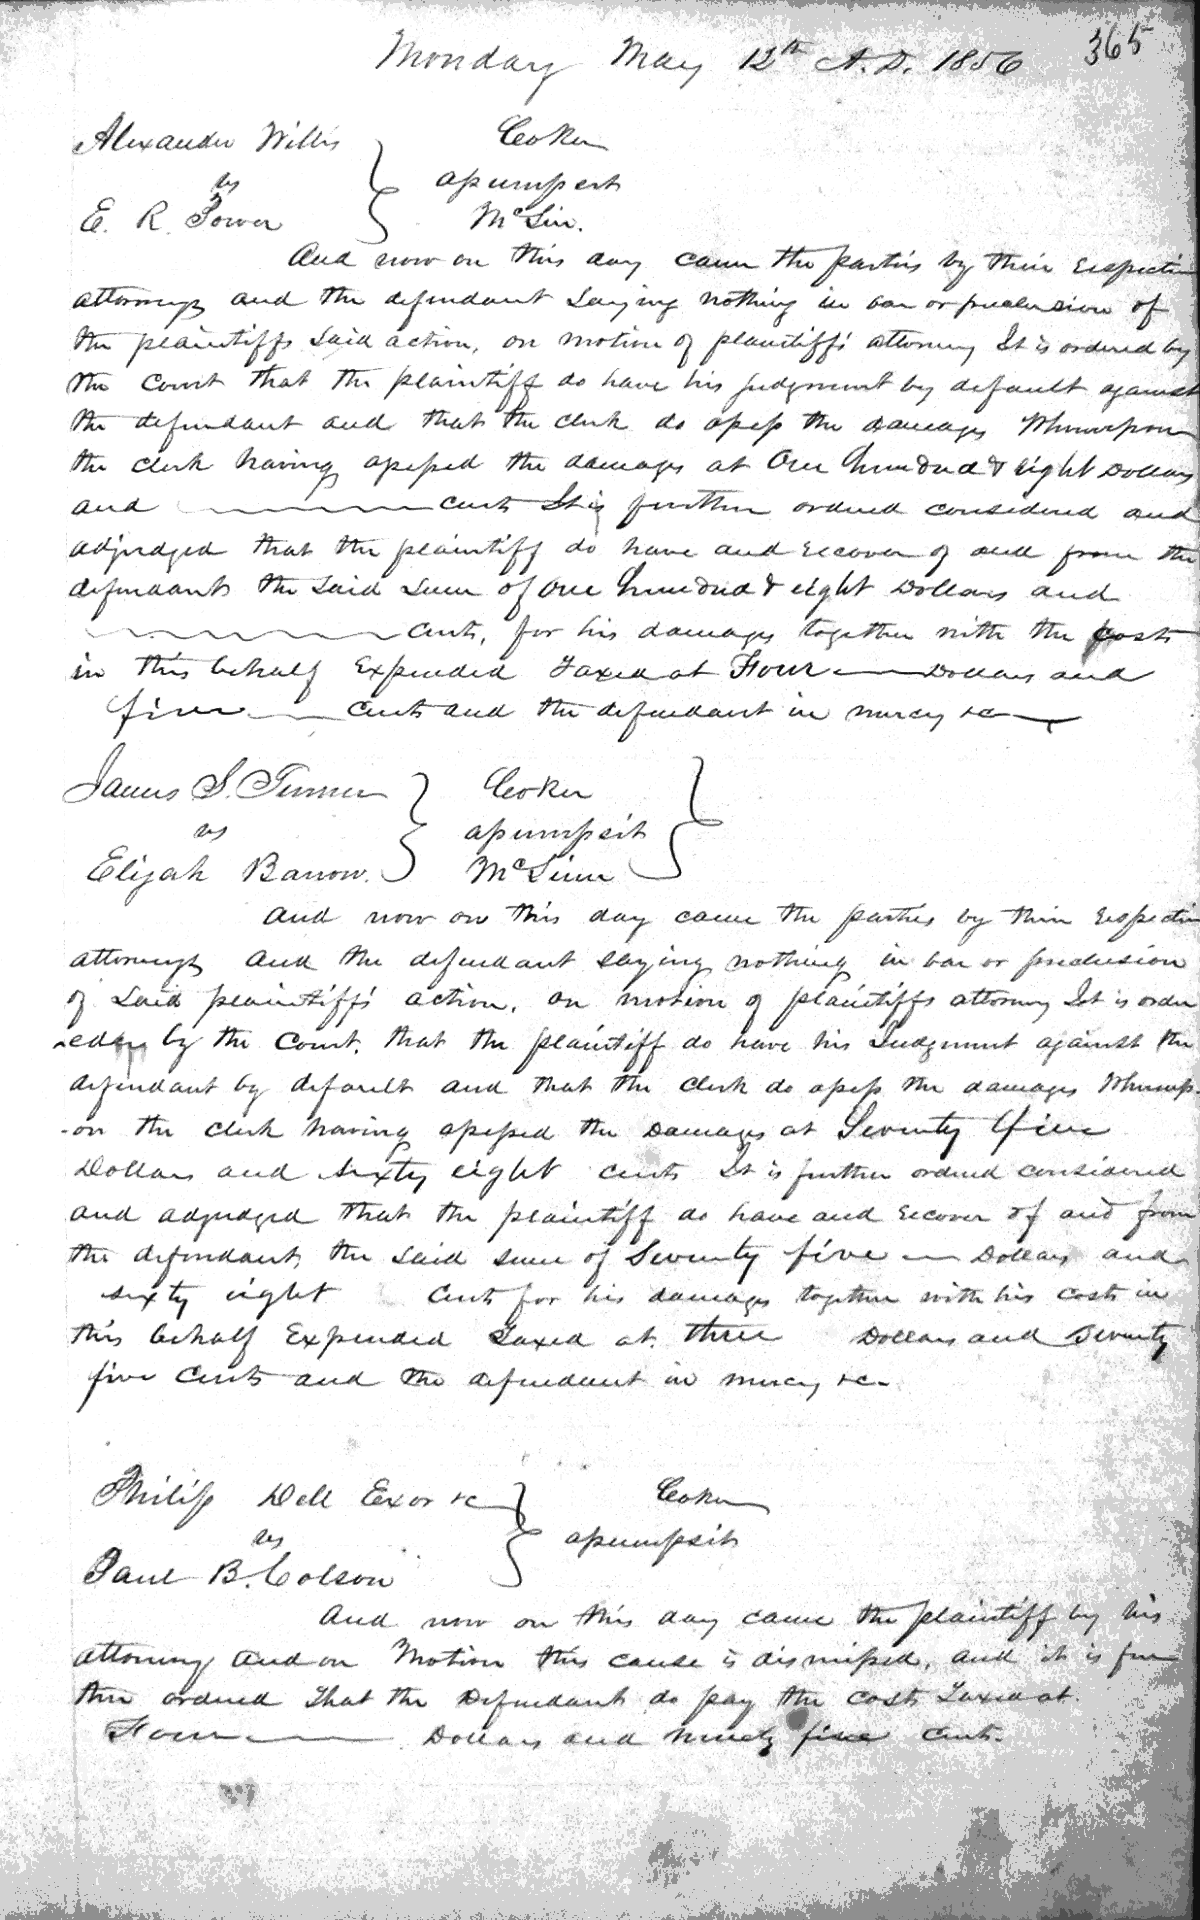 365
Monday May 12th A.D. 1856
Alexander Willis } Coker
vs assumpsit
E. R. Tower McLin.
And now on this day came the parties by their respective
attorneys and the defendant saying nothing in bar or preclusion of
the plaintiffs said action, on motion of plaintiffs' attorney It is ordered by
the Court that the plaintiff do have his judgment by default against
the defendant and that the clerk do assess the damages Whereupon
the clerk having assessed the damages at One hundred & eight Dollars
and cents It is further ordered considered and
adjudged that the plaintiff do have and recover of and from the
defendant the said sum of One hundred & eight Dollars and
cents, for his damages together with the costs
in this behalf Expended Taxed at Four Dollars and
five cents and the defendant in mercy &c
James S. Turner } Coker }
vs assumpsit
Elijah Barrow. McLinn
And now on this day came the parties by their respective
attorneys And the defendant saying nothing in bar or preclusion
of said plaintiffs' action, on motion of plaintiffs attorney It is order
-ed by the Court. that the plaintiff do have his Judgment against the
defendant by default and that the clerk do assess the damages Whereup-
-on the clerk having assessed the Damages at Seventy five
Dollars and sixty eight cents It is further ordered considered
and adjudged that the plaintiff do have and recover of and from
the defendant, the said sum of Seventy five Dollars and
sixty eight Cents for his damages together with his costs in
this behalf Expended Taxed at. three Dollars and Seventy
five Cents and the defendant in mercy &c
Philip Dell Exor &c } Coker
vs assumpsit
Paul B. Colson
And now on this day came the plaintiff by his
attorney and on Motion this cause is dismissed, and it is fur
ther ordered That the Defendant do pay the costs Taxed at
Four Dollars and ninety five cents.